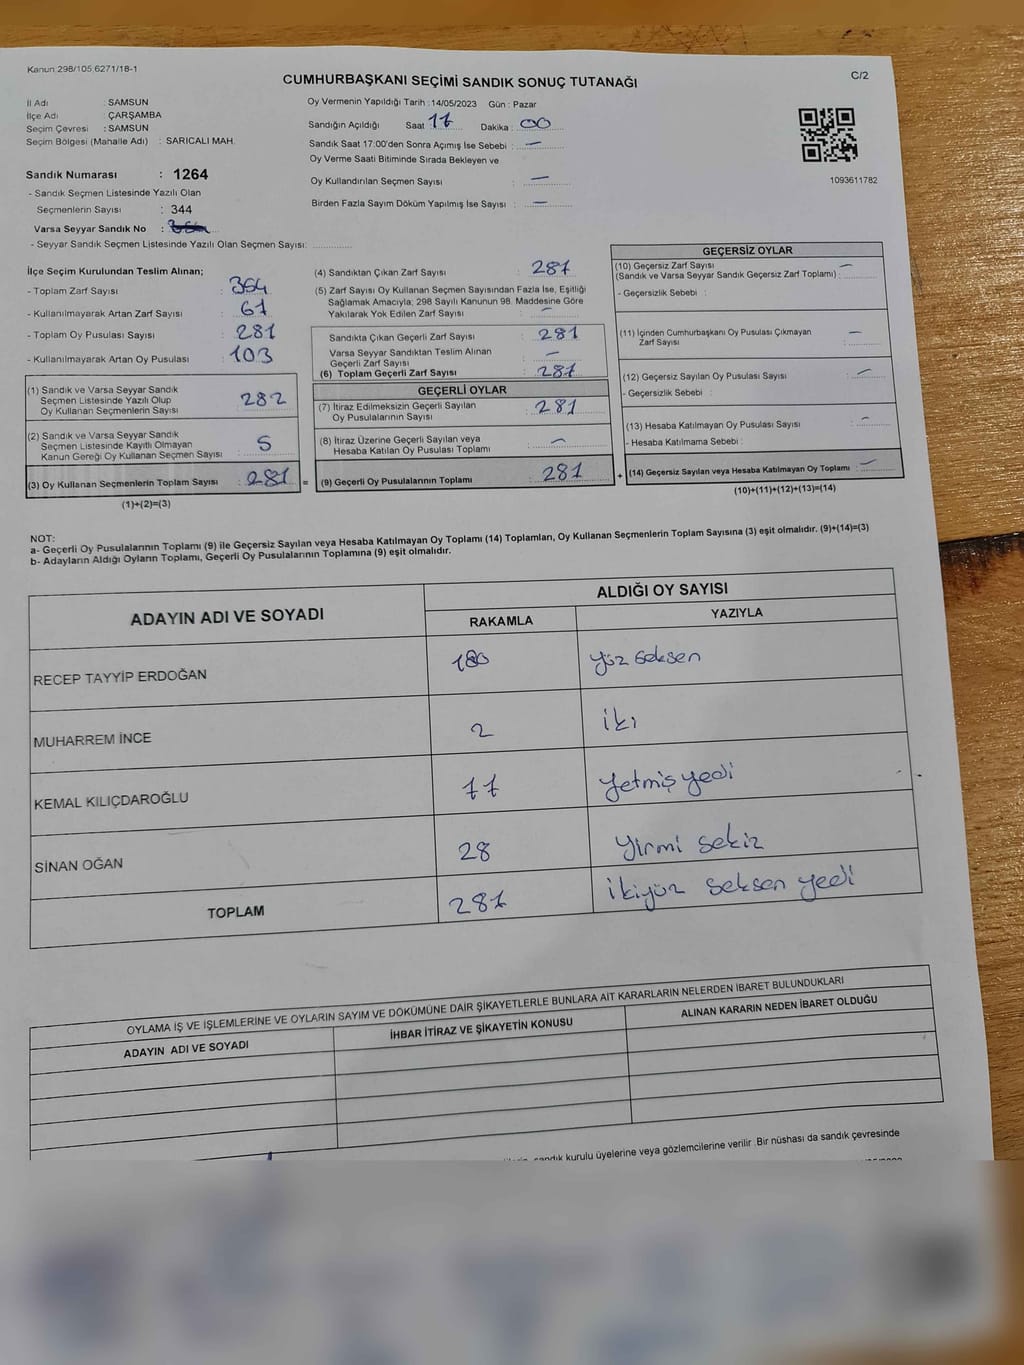 Kanun:298/105,6271/18-1
C/2
CUMHURBAŞKANI SEÇİMİ SANDIK SONUÇ TUTANAĞI
İl Adı : SAMSUN
İlçe Adı : ÇARŞAMBA
Seçim Çevresi : SAMSUN
Seçim Bölgesi (Mahalle Adı) : SARICALI MAH.
Sandık Numarası : 1264
- Sandık Seçmen Listesinde Yazılı Olan
Seçmenlerin Sayısı : 344
Varsa Seyyar Sandık No :
- Seyyar Sandık Seçmen Listesinde Yazılı Olan Seçmen Sayısı:
Oy Vermenin Yapıldığı Tarih : 14/05/2023 Gün : Pazar
Sandığın Açıldığı Saat 17 Dakika : 00
Sandık Saat 17:00'den Sonra Açımış İse Sebebi : —
Oy Verme Saati Bitiminde Sırada Bekleyen ve
Oy Kullandırılan Seçmen Sayısı : —
Birden Fazla Sayım Döküm Yapılmış İse Sayısı : —
1093611782
İlçe Seçim Kurulundan Teslim Alınan;
- Toplam Zarf Sayısı : 354
- Kullanılmayarak Artan Zarf Sayısı : 67
- Toplam Oy Pusulası Sayısı : 287
- Kullanılmayarak Artan Oy Pusulası : 103
(1) Sandık ve Varsa Seyyar Sandık
Seçmen Listesinde Yazılı Olup
Oy Kullanan Seçmenlerin Sayısı : 282
(2) Sandık ve Varsa Seyyar Sandık
Seçmen Listesinde Kayıtlı Olmayan
Kanun Gereği Oy Kullanan Seçmen Sayısı : 5
(3) Oy Kullanan Seçmenlerin Toplam Sayısı : 287 =
(1)+(2)=(3)
(4) Sandıktan Çıkan Zarf Sayısı : 287
(5) Zarf Sayısı Oy Kullanan Seçmen Sayısından Fazla İse, Eşitliği
Sağlamak Amacıyla; 298 Sayılı Kanunun 98. Maddesine Göre
Yakılarak Yok Edilen Zarf Sayısı : —
Sandıkta Çıkan Geçerli Zarf Sayısı : 287
Varsa Seyyar Sandıktan Teslim Alınan
Geçerli Zarf Sayısı : —
(6) Toplam Geçerli Zarf Sayısı : 287
GEÇERLİ OYLAR
(7) İtiraz Edilmeksizin Geçerli Sayılan
Oy Pusulalarının Sayısı : 287
(8) İtiraz Üzerine Geçerli Sayılan veya
Hesaba Katılan Oy Pusulası Toplamı : —
(9) Geçerli Oy Pusulalarının Toplamı : 287 +
GEÇERSİZ OYLAR
(10) Geçersiz Zarf Sayısı —
(Sandık ve Varsa Seyyar Sandık Geçersiz Zarf Toplamı) :
- Geçersizlik Sebebi :
(11) İçinden Cumhurbaşkanı Oy Pusulası Çıkmayan
Zarf Sayısı : —
(12) Geçersiz Sayılan Oy Pusulası Sayısı : —
- Geçersizlik Sebebi :
(13) Hesaba Katılmayan Oy Pusulası Sayısı : —
- Hesaba Katılmama Sebebi :
(14) Geçersiz Sayılan veya Hesaba Katılmayan Oy Toplamı : —
(10)+(11)+(12)+(13)=(14)
NOT:
a- Geçerli Oy Pusulalarının Toplamı (9) ile Geçersiz Sayılan veya Hesaba Katılmayan Oy Toplamı (14) Toplamları, Oy Kullanan Seçmenlerin Toplam Sayısına (3) eşit olmalıdır. (9)+(14)=(3)
b- Adayların Aldığı Oyların Toplamı, Geçerli Oy Pusulalarının Toplamına (9) eşit olmalıdır.
ADAYIN ADI VE SOYADI
ALDIĞI OY SAYISI
RAKAMLA YAZIYLA
RECEP TAYYİP ERDOĞAN 180 Yüz seksen
MUHARREM İNCE 2 iki
KEMAL KILIÇDAROĞLU 77 Yetmiş yedi
SİNAN OĞAN 28 Yirmi sekiz
TOPLAM 287 İkiyüz seksen yedi
OYLAMA İŞ VE İŞLEMLERİNE VE OYLARIN SAYIM VE DÖKÜMÜNE DAİR ŞİKAYETLERLE BUNLARA AİT KARARLARIN NELERDEN İBARET BULUNDUKLARI
ADAYIN ADI VE SOYADI İHBAR İTİRAZ VE ŞİKAYETİN KONUSU ALINAN KARARIN NEDEN İBARET OLDUĞU
sandık kurulu üyelerine veya gözlemcilerine verilir. Bir nüshası da sandık çevresinde